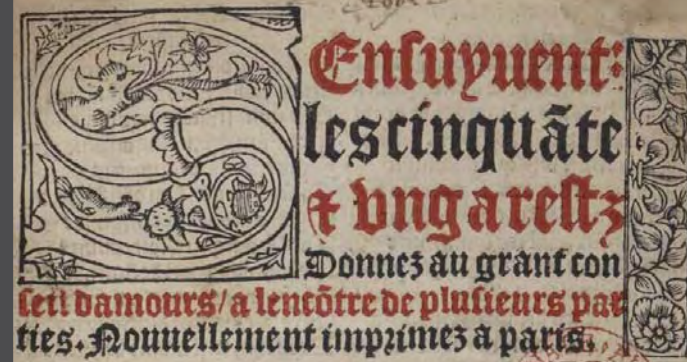 SEnsuyuent
les cinquãte
⁊ vng arestz
Donnez au grant con
seil damours/a lencõtre de plusieurs par
ties. Nouuellement imprimez a paris.